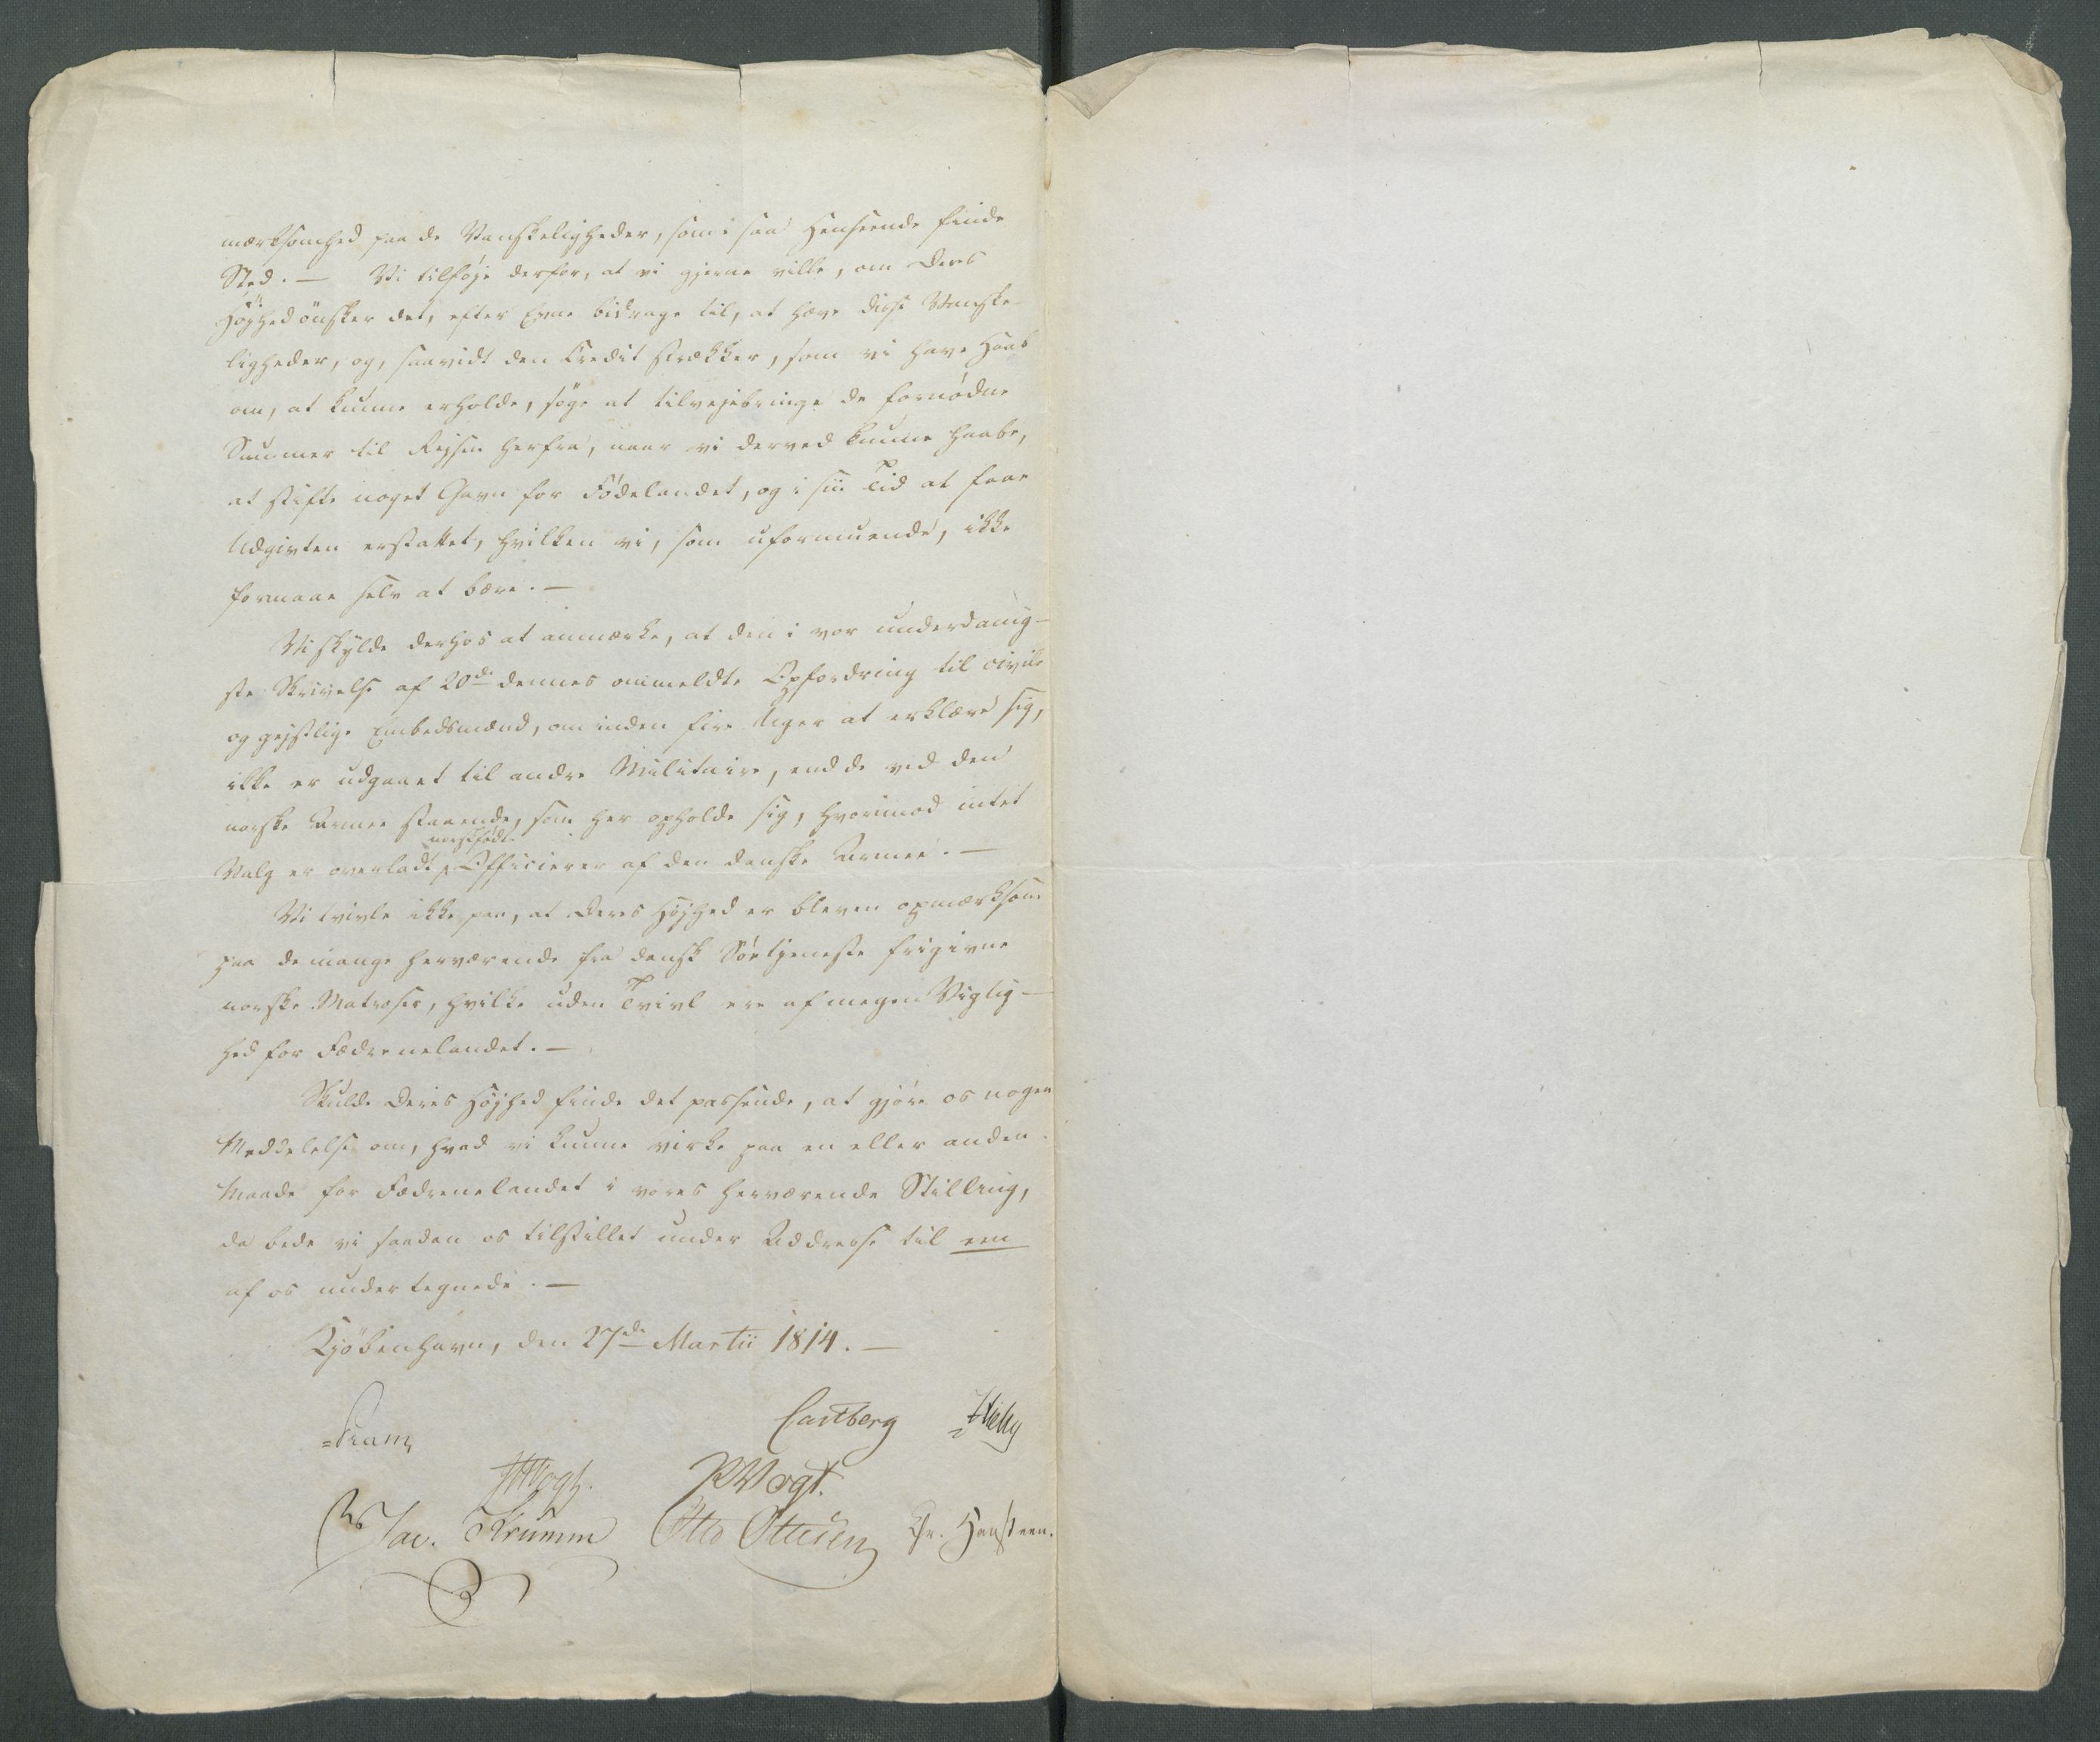 mærksomhed paa de Vanskeligheder, som i saa Henseende finde
Sted. — Vi tilføje derfor, at vi gjerne ville, om Deres
Højhed önsker det, efter Evne bidrage til, at hæve disse Vanske-
ligheder, og, saavidt den Credit strækker, som vi have Haab
om, at kunne erholde, söge at tilvejebringe de fornødne
Summer til Rejsen herfra, naar vi derved kunne haabe,
at stifte noget Gavn for Födelandet, og i sin Tid at faae
Udgivten erstattet, hvilken vi, som uformuende, ikke
formaae selv at bære. —
Vi skylde derhos at anmærke, at den i vor underdanig-
ste Skrivelse af 20de dennes ommeldte Opfordring til civile
og gejstlige Embedsmænd, om inden fire Uger at erklære sig,
ikke er udgaaet til andre Militaire, end de ved den
norske Armee staaende, som her opholde sig, hvorimod intet
Valg er overladt norskfödte Officierer af den danske Armee. —
Vi tvivle ikke paa, at Deres Højhed er bleven opmærksom
paa de mange herværende fra dansk Söetjeneste frigivne
norske Matroser, hvilke uden Tvivl ere af megen Vigtig-
hed for Fædrenelandet. —
Skulde Deres Højhed finde det passende, at gjöre os nogen
Meddelelse om, hvad vi kunne virke paa en eller anden
Maade for Fædrenelandet i vores herværende Stilling,
da bede vi saadan os tilstillet under Addresse til een
af os undertegnede. —
Kjöbenhavn, den 27de Martii 1814. —
Pram
Castberg
JHVogt.
RVogt.
Jac. Krumm Otto Ottesen Chr. Hansteen.